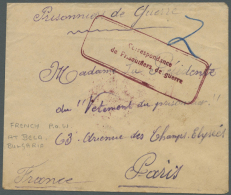 Prisonniers de Guerre
Correspondance
de Prisonniers de guerre
Madame la Présidente
du "Vêtement du prisonnier"
63 Avenue des Champs Elysées
Paris
France
FRENCH MISSI
AT BELA
BULGARIE